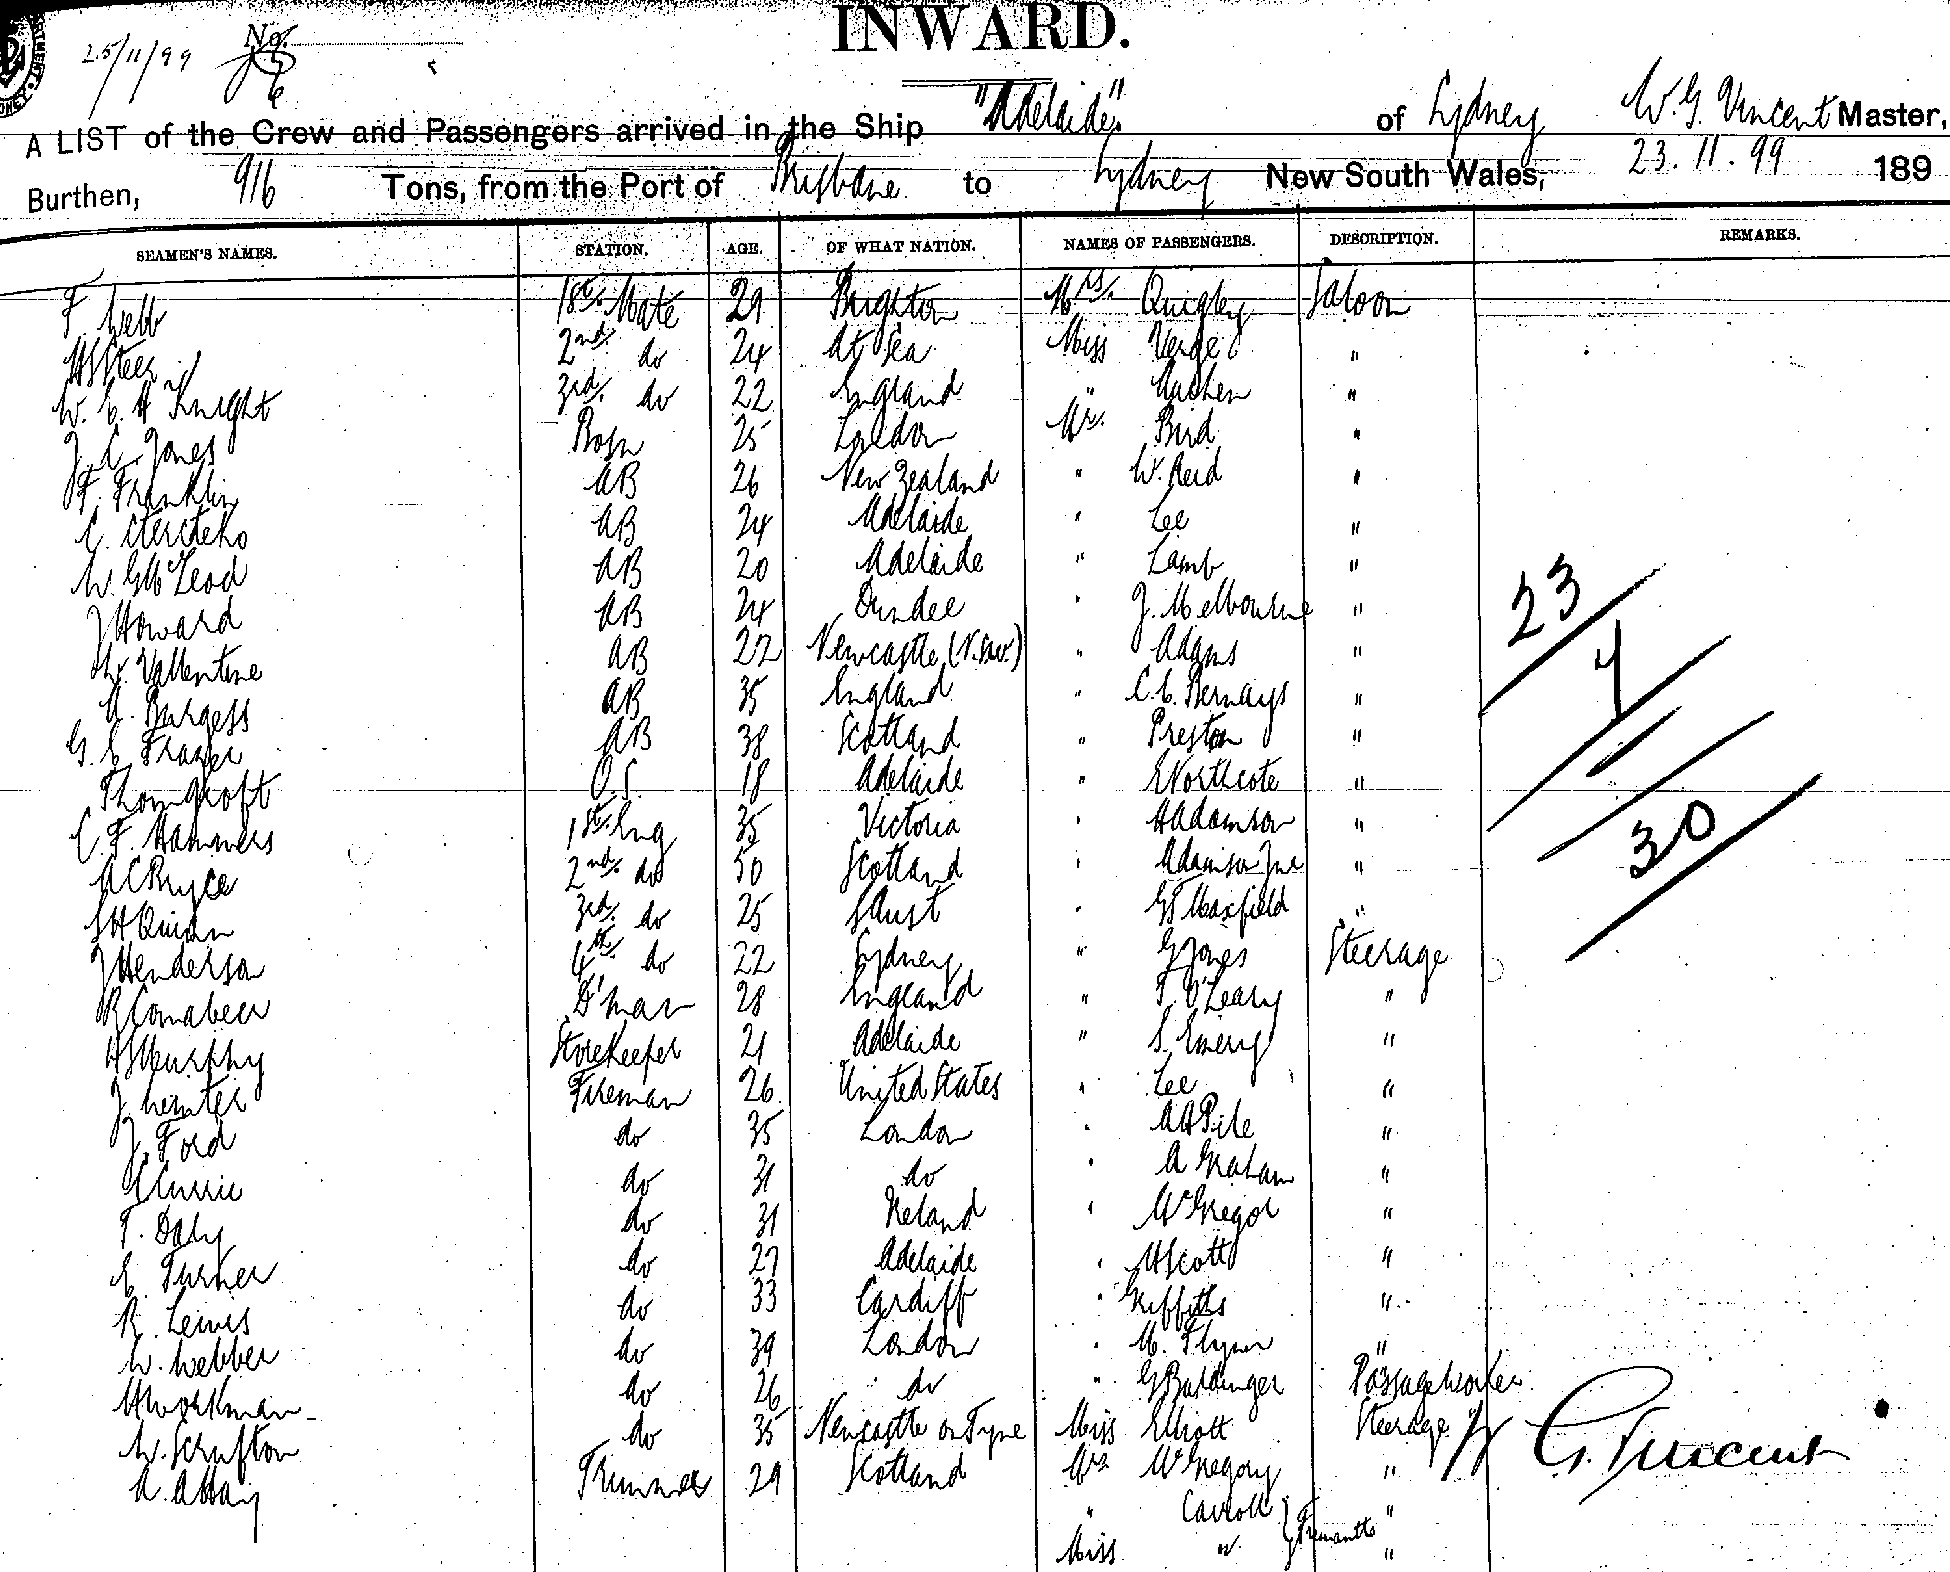 INWARD.
25/11/99 No.
A LIST of the Crew and Passengers arrived in the Ship "Adelaide" of Sydney W. G. Vincent Master,
Burthen, 916 Tons, from the Port of Brisbane to Sydney New South Wales, 23. 11. 99 189
SEAMEN'S NAMES. STATION. AGE. OF WHAT NATION. NAMES OF PASSENGERS. DESCRIPTION. REMARKS.
F Webb 1st. Mate 29 Brighton Mrs. Quigley Saloon
2nd. do 24 At Sea Miss "
W. E. A Knight 3rd. do 22 England " "
J. C. Jones Bosn 25 London Mr. Bird "
F. Franklin AB 26 New Zealand " W. Reid "
AB 24 Adelaide " Lee "
AB 20 Adelaide " Lamb "
J Howard AB 24 Dundee " J. Melbourne "
W. Vallentine AB 22 Newcastle (N.S.W.) " Adams "
A. Burgess AB 35 England " C. E. Bernays "
G. E. Frazer AB 38 Scotland " Preston "
Thomcroft O.S. 18 Adelaide " E Northcote "
C. F. Hammers 1st. Eng 35 Victoria " H Adamson "
A C Bryce 2nd. do 50 Scotland " Adamson Jnr "
S H Quinn 3rd. do 25 S Aust " Maxfield "
J Henderson 4th. do 22 Sydney " G Jones Steerage
R Connabeer D'man 28 England " T. O'Leary "
Murphy Storekeeper 21 Adelaide " S. Emery "
Fireman 26 United States " Lee "
J. Ford do 35 London " A A Pile "
Currie do 31 do " A Graham "
T. Daly do 31 Ireland " McGregor "
E. Turner do 27 Adelaide " H Scott "
R. Lewis do 33 Cardiff " Griffiths "
W. Webber do 39 London " M. Flynn "
H Workman do 26 do " G Baldinger Passageworker
W. Scrufton do 35 Newcastle on Tyne Miss Elliott Steerage
A. A Hay Trimmer 29 Scotland Mrs McGregory "
" Carroll } Fremantle "
Miss do. "
23
7
30
W G. Vincent